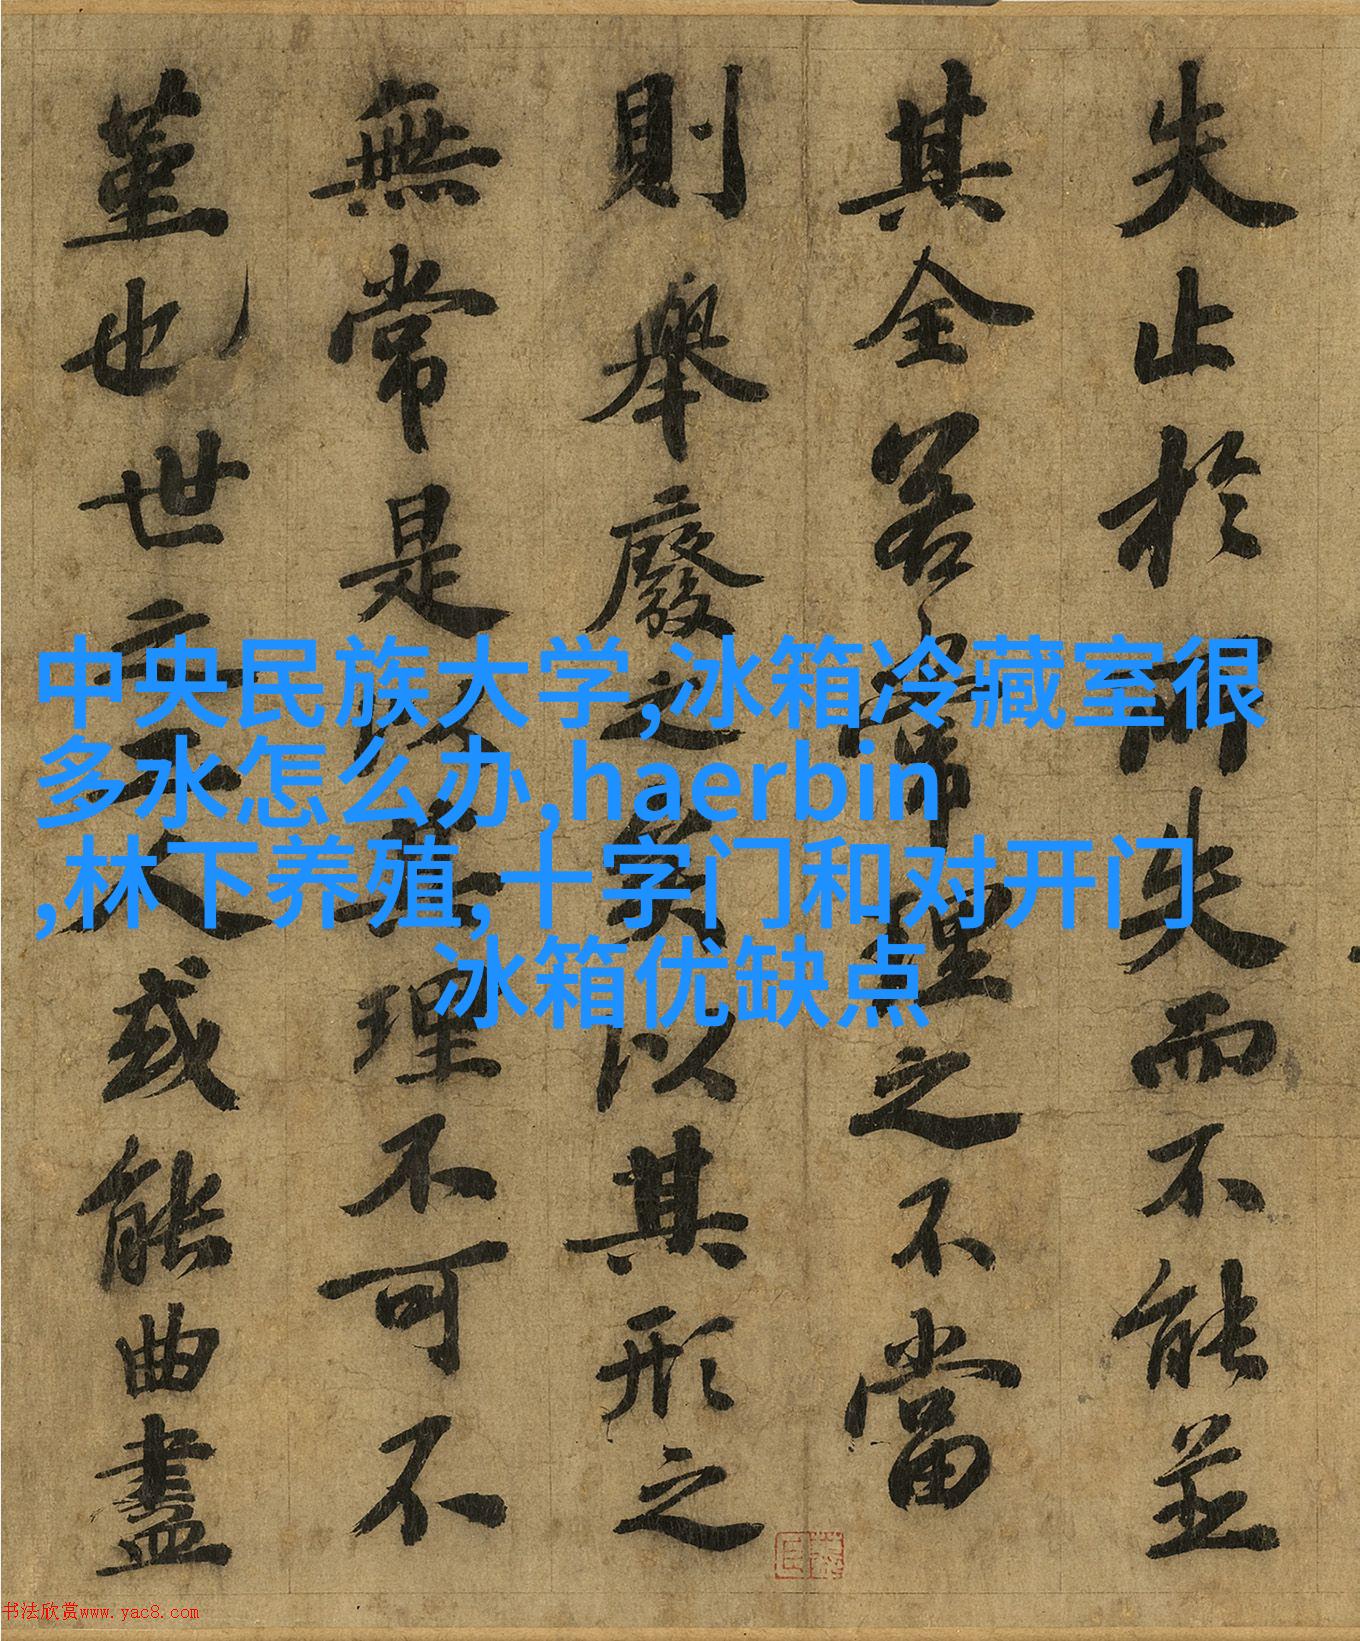 失止於所失而不能並
其全若常理之不當
則舉廢之矣以其形之
無常是以其理不可不
堇也世之工人或能曲盡
中央民族大学,冰箱冷藏室很
多水怎么办,haerbin
,林下养殖,十字门和对开门
冰箱优缺点
书法欣赏www.yac8.com